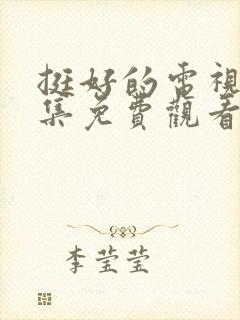 挺好的電視
集免費觀看
李莹莹